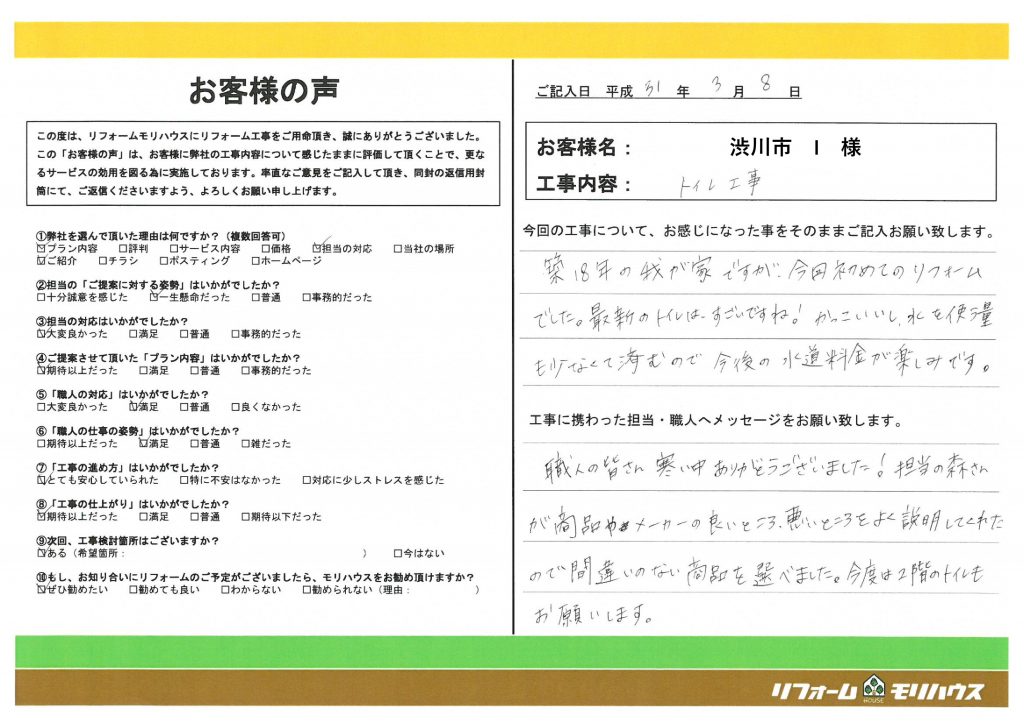 お客様の声
この度は、リフォームモリハウスにリフォーム工事をご用命頂き、誠にありがとうございました。
この「お客様の声」は、お客様に弊社の工事内容について感じたままに評価して頂くことで、更な
るサービスの効用を図る為に実施しております。率直なご意見をご記入して頂き、同封の返信用封
筒にて、ご返信くださいますよう、よろしくお願い申し上げます。
①弊社を選んで頂いた理由は何ですか？（複数回答可）
☑プラン内容 □評判 □サービス内容 □価格 ☑担当の対応 □当社の場所
☑ご紹介 □チラシ □ポスティング □ホームページ
②担当の「ご提案に対する姿勢」はいかがでしたか？
□十分誠意を感じた ☑一生懸命だった □普通 □事務的だった
③担当の対応はいかがでしたか？
☑大変良かった □満足 □普通 □事務的だった
④ご提案させて頂いた「プラン内容」はいかがでしたか？
☑期待以上だった □満足 □普通 □事務的だった
⑤「職人の対応」はいかがでしたか？
□大変良かった ☑満足 □普通 □良くなかった
⑥「職人の仕事の姿勢」はいかがでしたか？
□期待以上だった ☑満足 □普通 □雑だった
⑦「工事の進め方」はいかがでしたか？
☑とても安心していられた □特に不安はなかった □対応に少しストレスを感じた
⑧「工事の仕上がり」はいかがでしたか？
☑期待以上だった □満足 □普通 □期待以下だった
⑨次回、工事検討箇所はございますか？
☑ある（希望箇所： ） □今はない
⑩もし、お知り合いにリフォームのご予定がございましたら、モリハウスをお勧め頂けますか？
☑ぜひ勧めたい □勧めても良い □わからない □勧められない（理由： ）
ご記入日 平成 31 年 3 月 8 日
お客様名： 渋川市 I 様
工事内容： トイレ工事
今回の工事について、お感じになった事をそのままご記入お願い致します。
築18年の我が家ですが、今回初めてのリフォーム
でした。最新のトイレは、すごいですね！かっこいいし、水を使う量
も少なくて済むので今後の水道料金が楽しみです。
工事に携わった担当・職人へメッセージをお願い致します。
職人の皆さん寒い中ありがとうございました！担当の森さん
が商品やメーカーの良いところ、悪いところをよく説明してくれた
ので間違いのない商品を選べました。今度は2階のトイレも
お願いします。
リフォーム HOUSE モリハウス